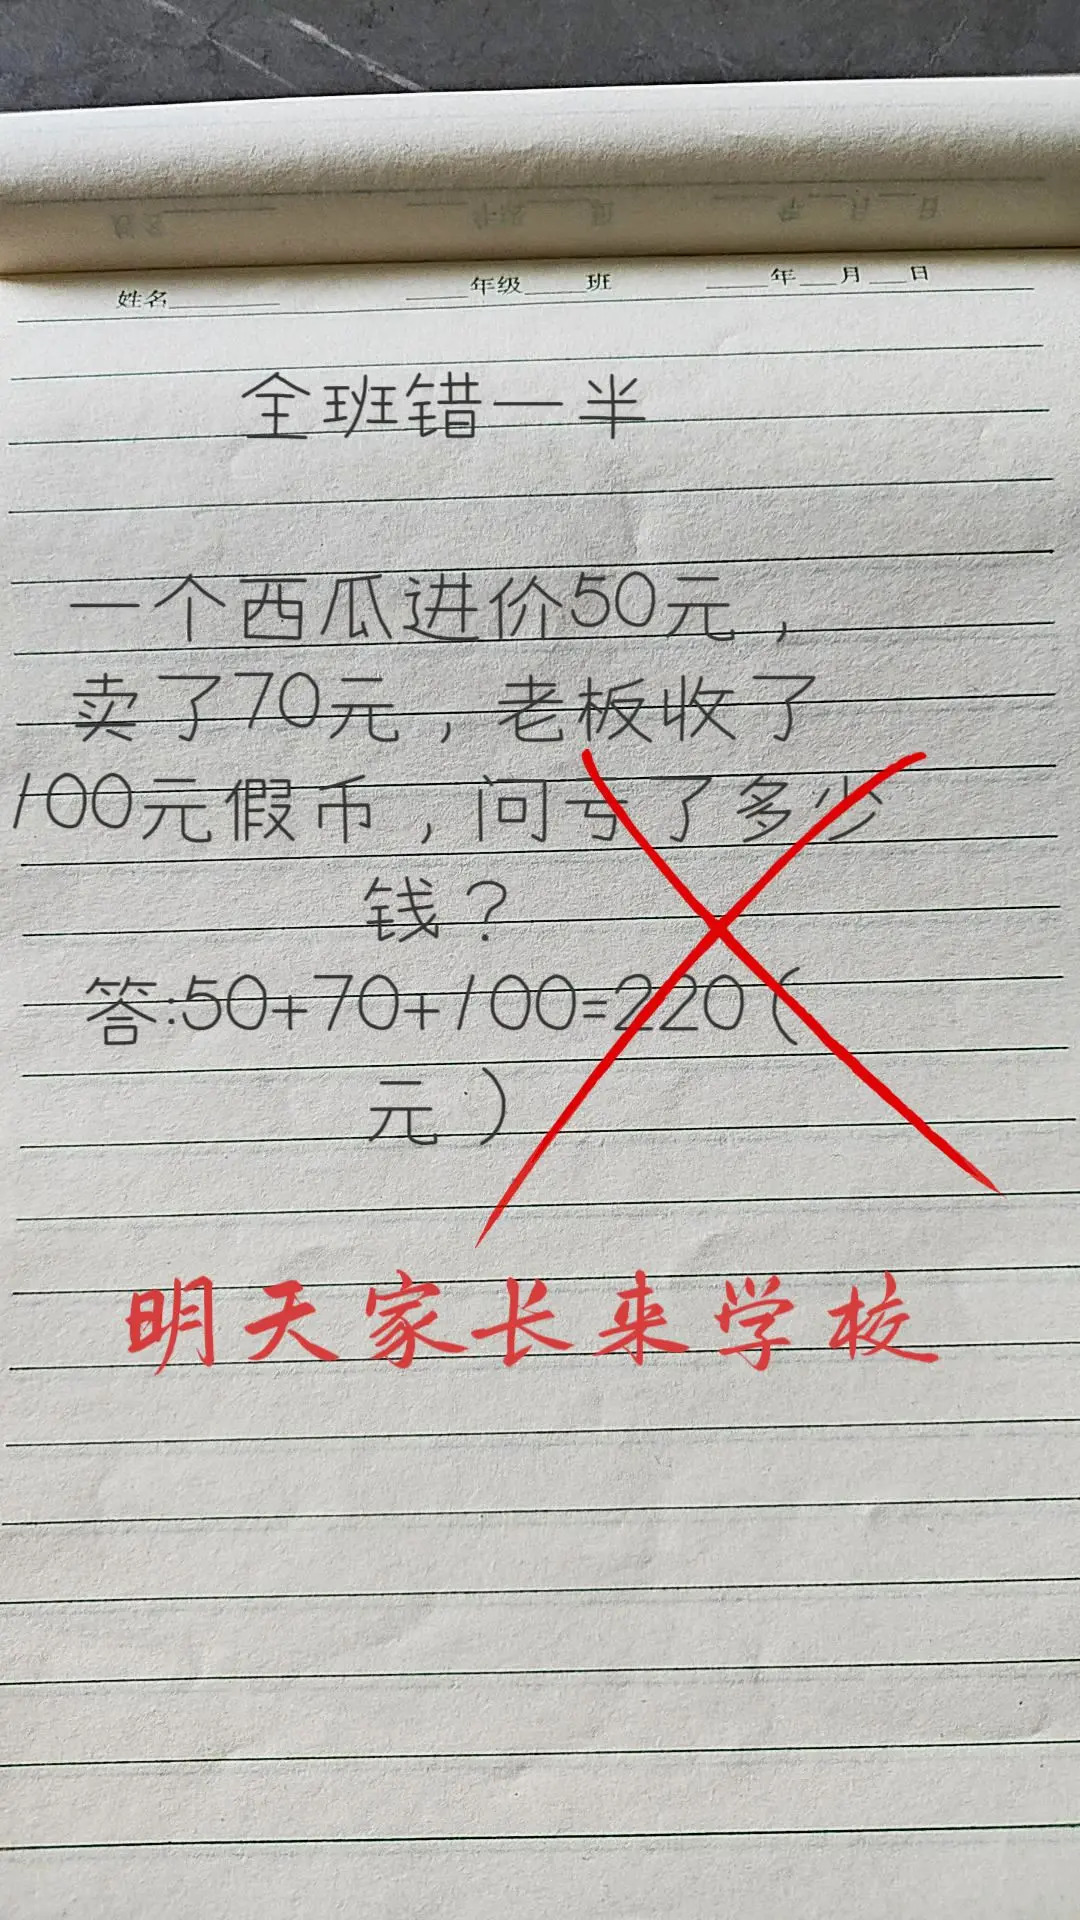 姓名______ ____年级____班 _____年___月___日
全班错一半
一个西瓜进价50元，
卖了70元，老板收了
100元假币，问亏了多少
钱？
答:50+70+100=220（
元）
明天家长来学校